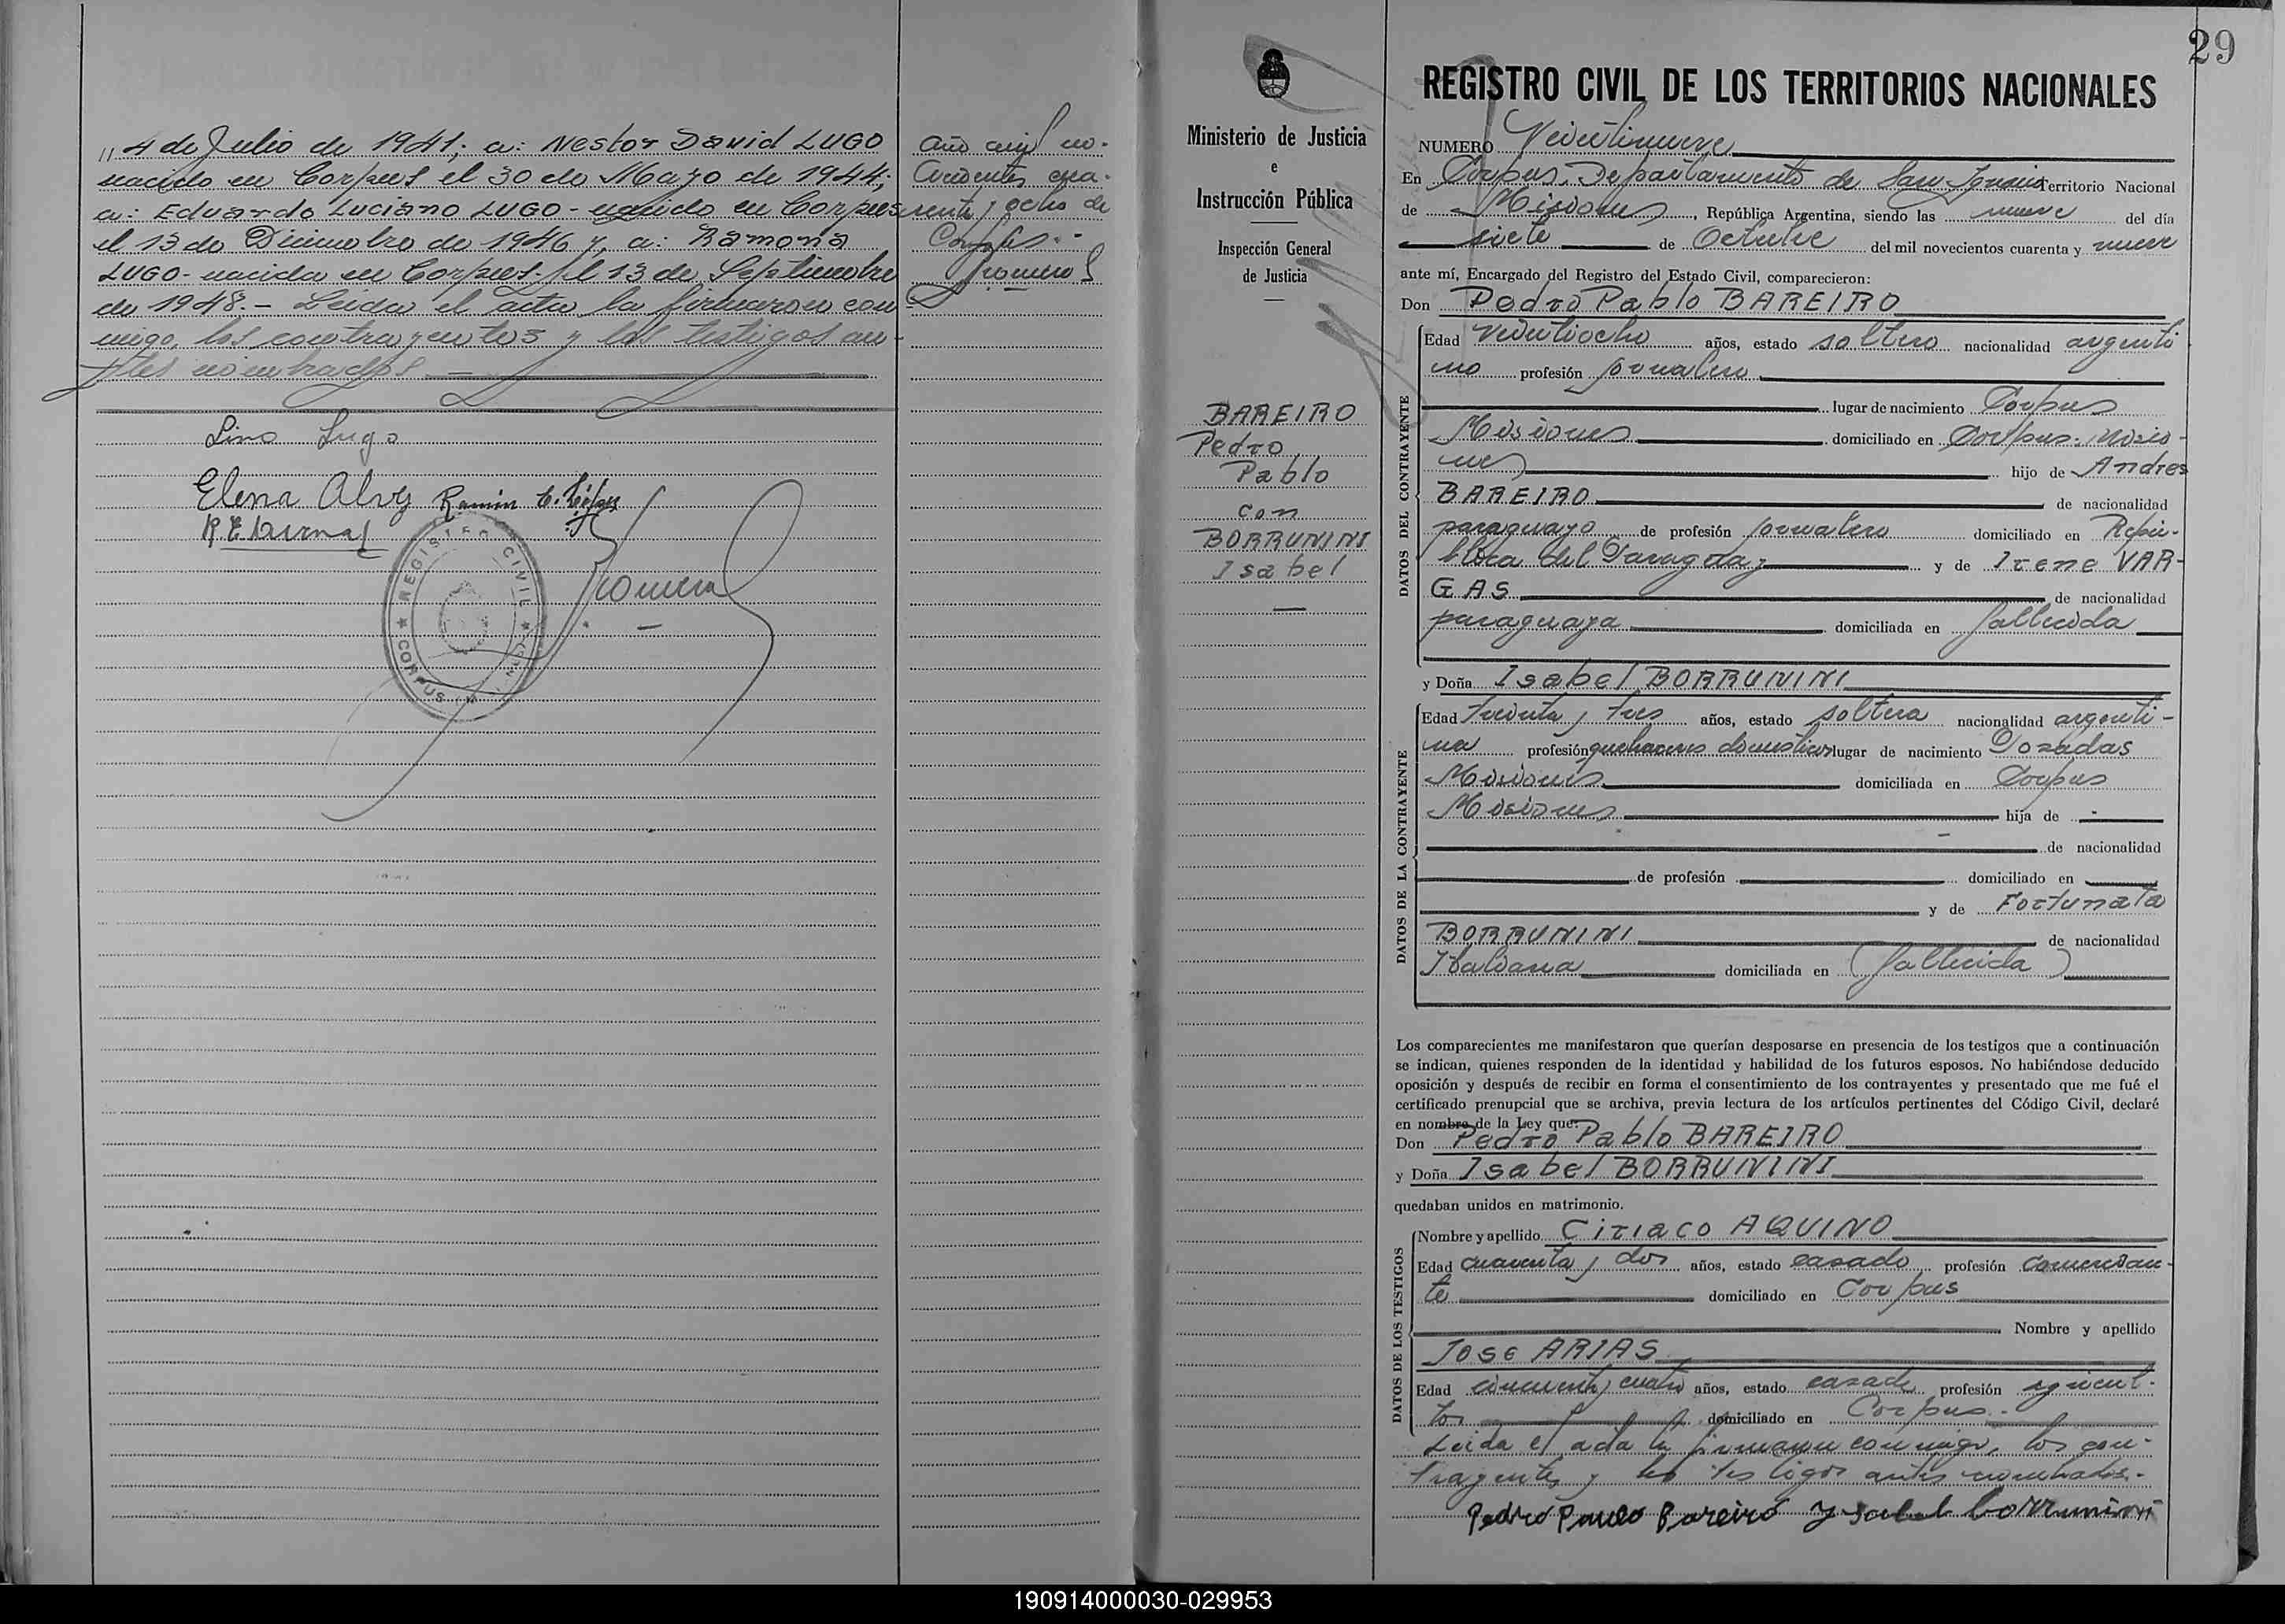 4 de Julio de 1941; a: Nestor David LUGO
nacido en Corpus el 30 de Mayo de 1944;
a: Eduardo Luciano LUGO - nacido en Corpus
el 13 de Diciembre de 1946 y, a: Ramona
LUGO - nacida en Corpus el 13 de Septiembre
de 1948.- Leida el acta la firmaron con
migo, los contrayentes y los testigos an-
tes nombrados.-
Lino Lugo
Elena Alvez Ramón
año mil no-
vecientos cua-
renta y ocho de
Corpus.-
Romero
REGISTRO CIVIL
CORPUS
Romero
29
Ministerio de Justicia
e
Instrucción Pública
Inspección General
de Justicia
BAREIRO
Pedro
Pablo
con
BORRUNINI
Isabel
REGISTRO CIVIL DE LOS TERRITORIOS NACIONALES
NUMERO Veintinueve
En Corpus, Departamento de San Ignacio Territorio Nacional
de Misiones, República Argentina, siendo las nueve del día
siete de Octubre del mil novecientos cuarenta y nueve
ante mí, Encargado del Registro del Estado Civil, comparecieron:
Don Pedro Pablo BAREIRO
DATOS DEL CONTRAYENTE
Edad veintiocho años, estado soltero nacionalidad argenti
no profesión jornalero
lugar de nacimiento Corpus
Misiones domiciliado en Corpus. Misio-
nes hijo de Andres
BAREIRO de nacionalidad
paraguayo de profesión jornalero domiciliado en Repú-
blica del Paraguay y de Irene VAR-
GAS de nacionalidad
paraguaya domiciliada en fallecida
y Doña Isabel BORRUNINI
DATOS DE LA CONTRAYENTE
Edad treinta y tres años, estado soltera nacionalidad argenti-
na profesión quehaceres domesticos lugar de nacimiento Posadas
Misiones domiciliada en Corpus
Misiones hija de
de nacionalidad
de profesión domiciliado en
y de Fortunata
BORRUNINI de nacionalidad
Italiana domiciliada en (fallecida)
Los comparecientes me manifestaron que querían desposarse en presencia de los testigos que a continuación
se indican, quienes responden de la identidad y habilidad de los futuros esposos. No habiéndose deducido
oposición y después de recibir en forma el consentimiento de los contrayentes y presentado que me fué el
certificado prenupcial que se archiva, previa lectura de los artículos pertinentes del Código Civil, declaré
en nombre de la Ley que:
Don Pedro Pablo BAREIRO
y Doña Isabel BORRUNINI
quedaban unidos en matrimonio.
DATOS DE LOS TESTIGOS
Nombre y apellido Ciriaco AQUINO
Edad cuarenta y dos años, estado casado profesión comercian-
te domiciliado en Corpus
Nombre y apellido
Jose ARIAS
Edad cincuenta y cuatro años, estado casado profesión agricul-
tor domiciliado en Corpus.-
Leida el acta la firmaron conmigo, los con-
trayentes y los testigos antes nombrados.-
Pedro Pavlo Bareiro Ysabel borrunini
190914000030-029953